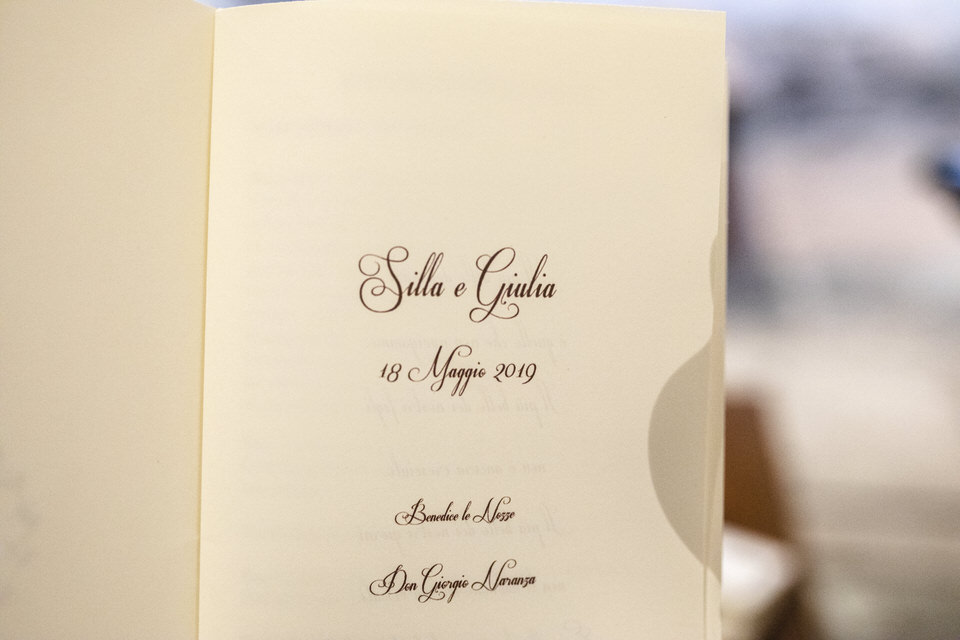 Silla e Giulia
18 Maggio 2019
Benedice le Nozze
Don Giorgio Naranza